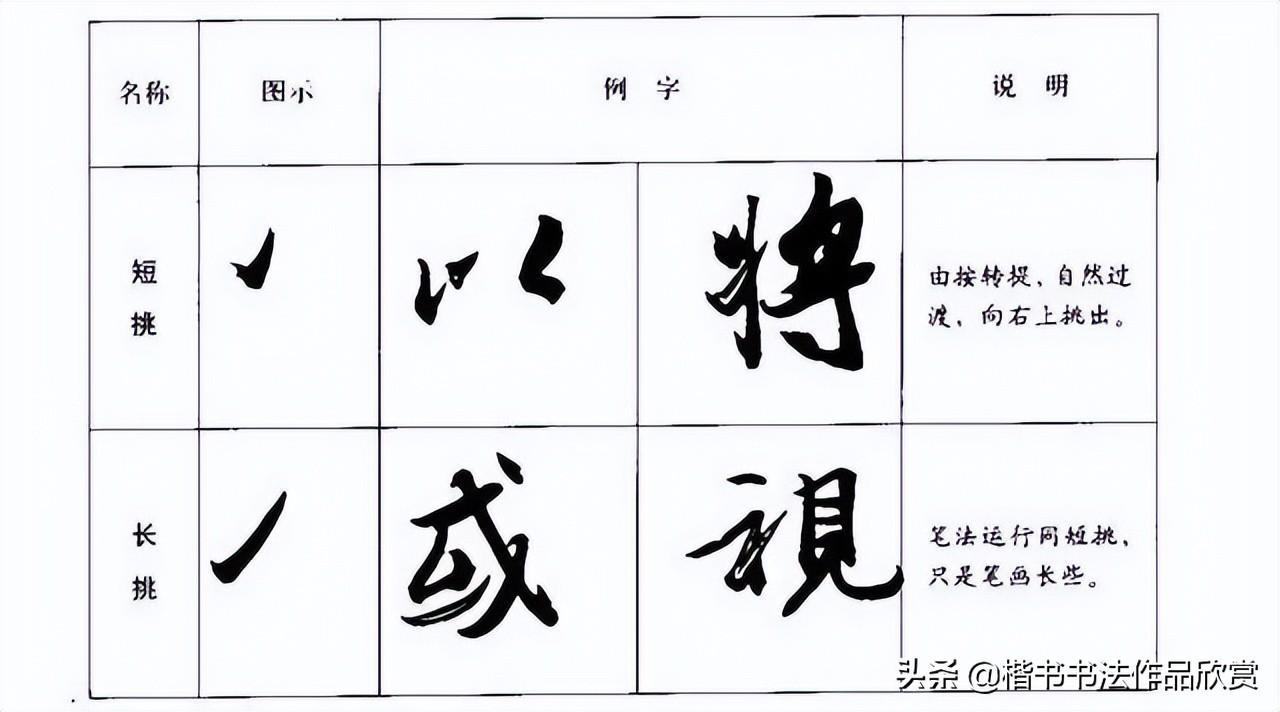 名称 图示 例字 说明
短挑
以 将
由按转提，自然过
渡，向右上挑出。
长挑
或 視
笔法运行同短挑，
只是笔画长些。
头条 @楷书书法作品欣赏